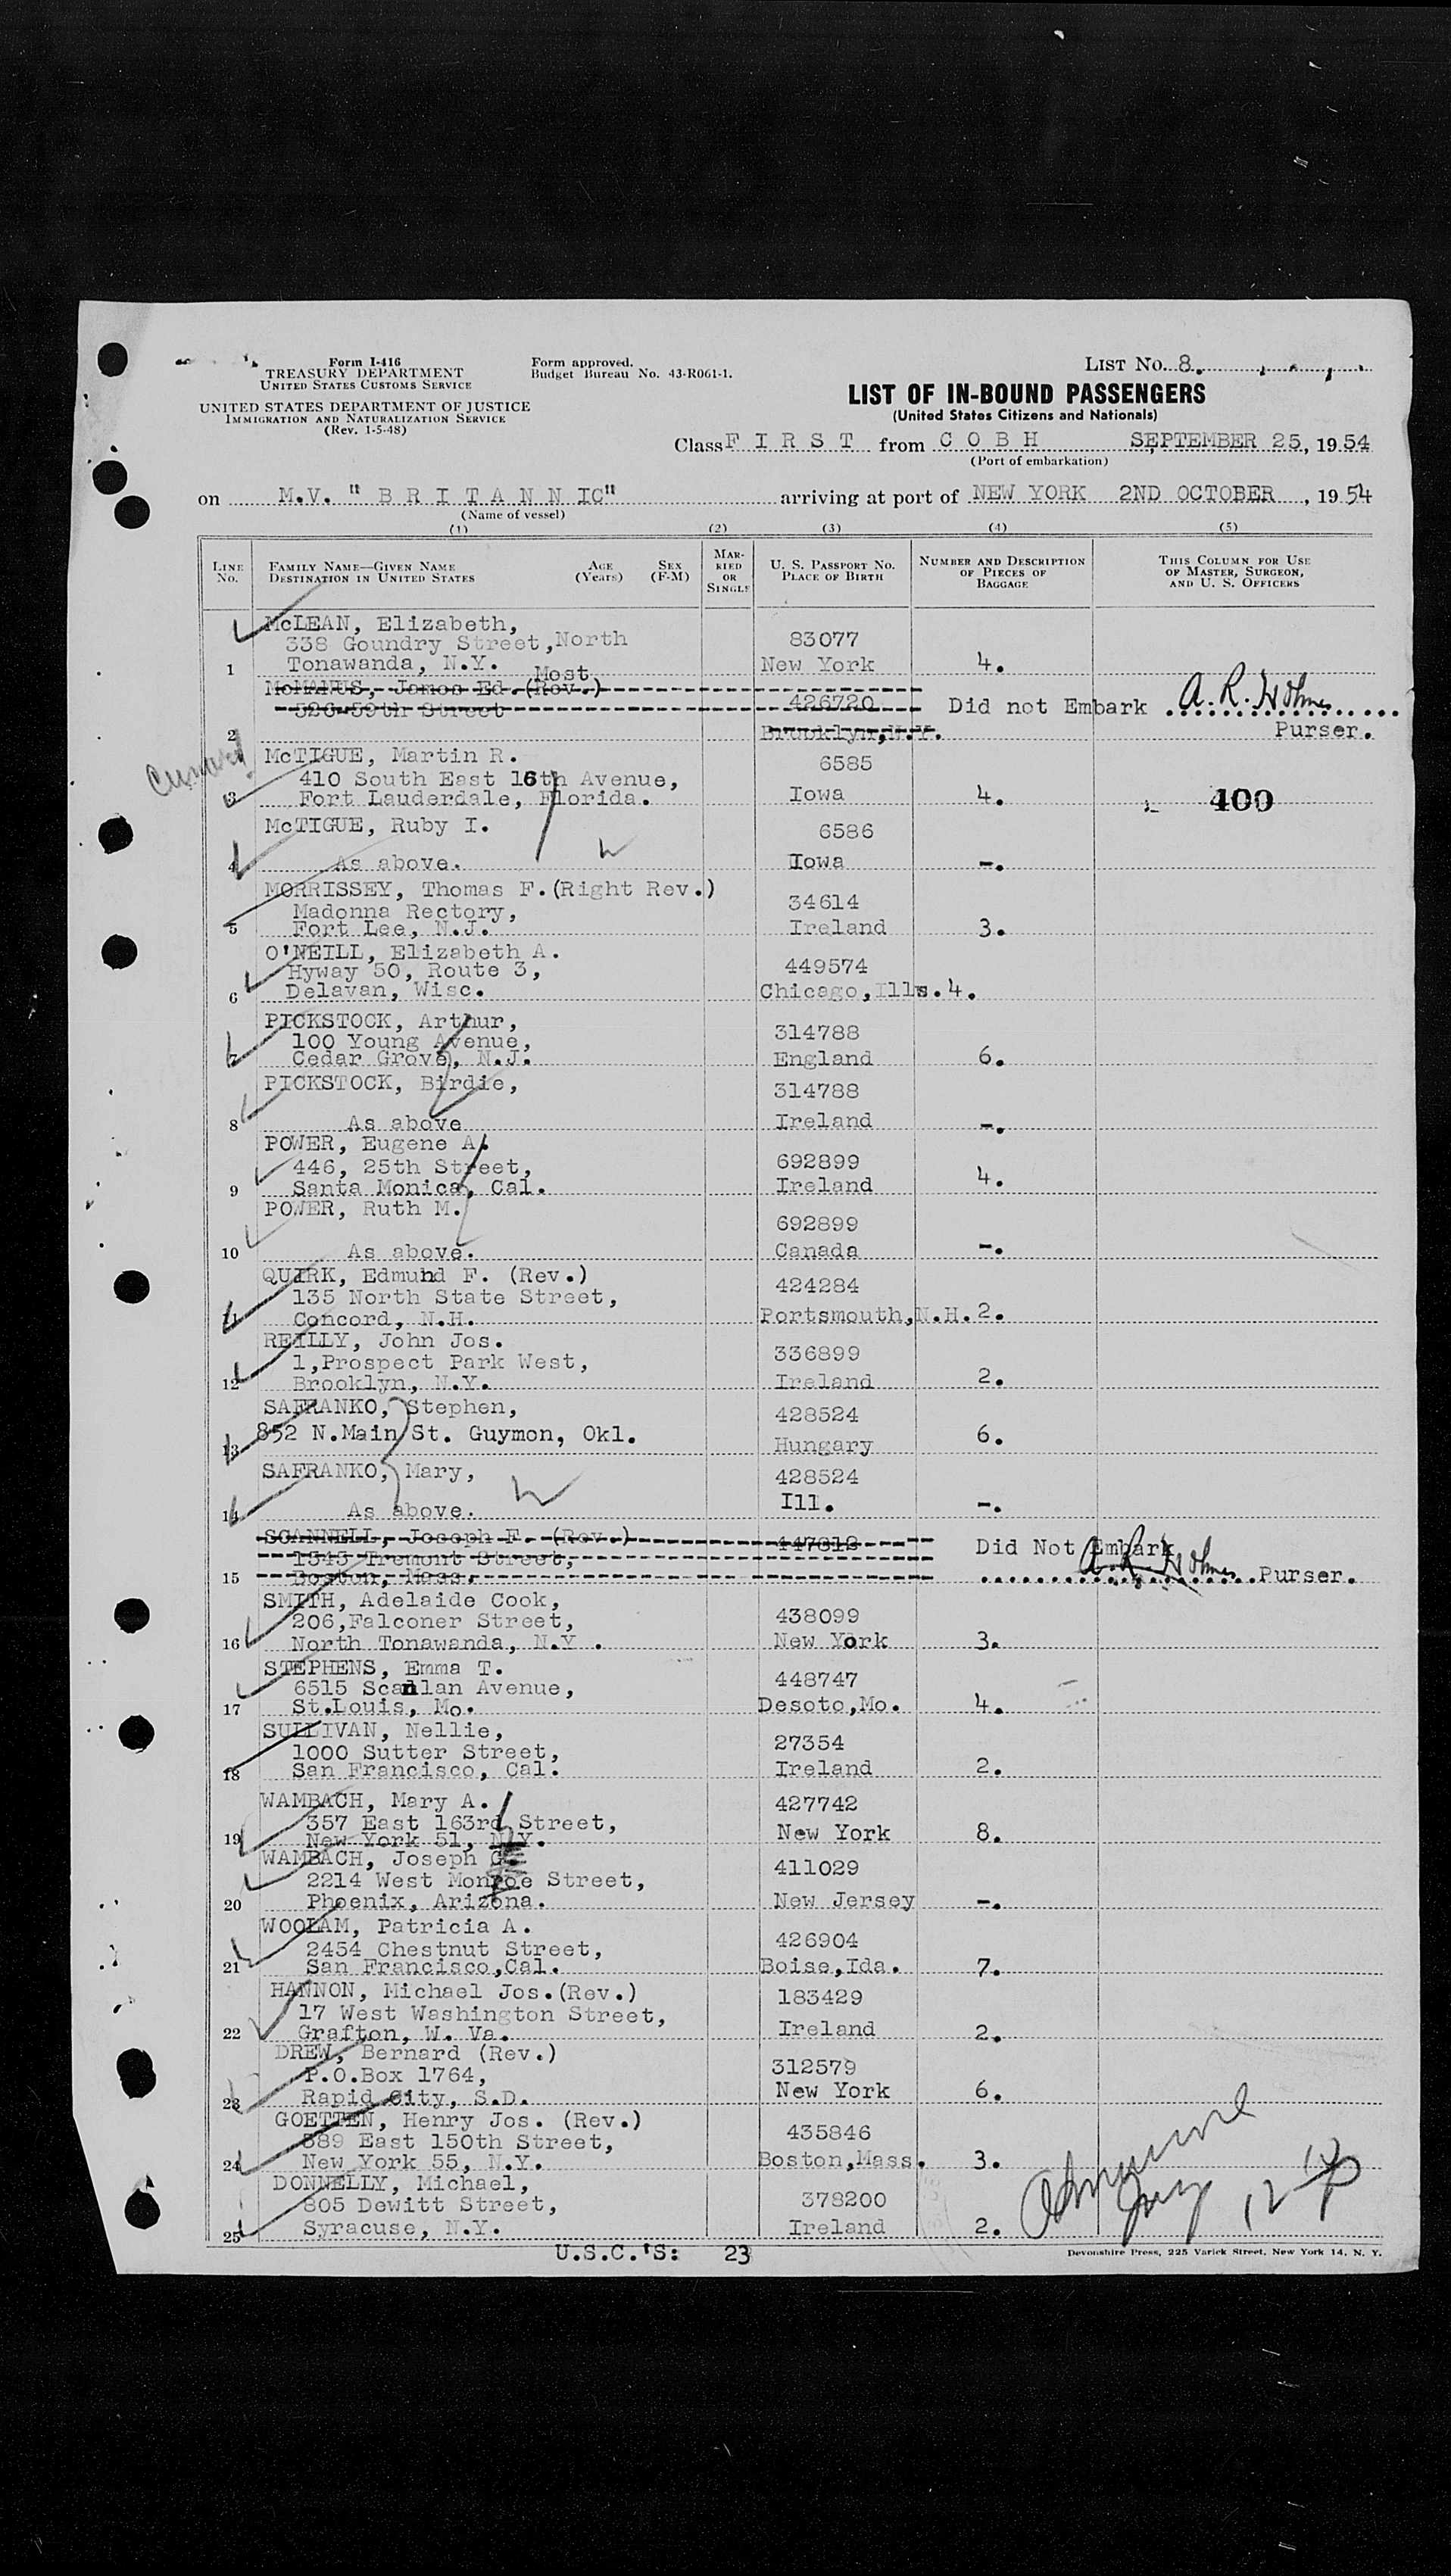 Form I-416
TREASURY DEPARTMENT
UNITED STATES CUSTOMS SERVICE
UNITED STATES DEPARTMENT OF JUSTICE
IMMIGRATION AND NATURALIZATION SERVICE
(Rev. 1-5-48)
Form approved.
Budget Bureau No. 43-R061-1.
LIST No. 8.
LIST OF IN-BOUND PASSENGERS
(United States Citizens and Nationals)
Class F I R S T from C O B H SEPTEMBER 25, 1954
(Port of embarkation)
on M.V. "B R I T A N N IC" arriving at port of NEW YORK 2ND OCTOBER, 1954
(Name of vessel)
(1) (2) (3) (4) (5)
LINE No. FAMILY NAME—GIVEN NAME DESTINATION IN UNITED STATES AGE (Years) SEX (F-M) MARRIED OR SINGLE U. S. PASSPORT No. PLACE OF BIRTH NUMBER AND DESCRIPTION OF PIECES OF BAGGAGE THIS COLUMN FOR USE OF MASTER, SURGEON, AND U. S. OFFICERS
McLEAN, Elizabeth,
338 Goundry Street, North 83077
1 Tonawanda, N.Y. New York 4.
Most
McMANUS, James Ed. (Rev.)
526-59th Street 426720 Did not Embark A. R. Holmes
2 Brooklyn, N.Y. Purser.
McTIGUE, Martin R. 6585
Cunard
410 South East 16th Avenue,
3 Fort Lauderdale, Florida. Iowa 4. 400
McTIGUE, Ruby I. 6586
4 As above. Iowa -.
MORRISSEY, Thomas F. (Right Rev.)
Madonna Rectory, 34614
5 Fort Lee, N.J. Ireland 3.
O'NEILL, Elizabeth A.
Hyway 50, Route 3, 449574
6 Delavan, Wisc. Chicago, Ills. 4.
PICKSTOCK, Arthur,
100 Young Avenue, 314788
7 Cedar Grove, N.J. England 6.
PICKSTOCK, Birdie, 314788
8 As above Ireland -.
POWER, Eugene A.
446, 25th Street, 692899
9 Santa Monica, Cal. Ireland 4.
POWER, Ruth M. 692899
10 As above. Canada -.
QUIRK, Edmund F. (Rev.)
135 North State Street, 424284
11 Concord, N.H. Portsmouth, N.H. 2.
REILLY, John Jos.
1, Prospect Park West, 336899
12 Brooklyn, N.Y. Ireland 2.
SAFRANKO, Stephen, 428524
13 852 N.Main St. Guymon, Okl. Hungary 6.
SAFRANKO, Mary, 428524
14 As above. Ill. -.
SCANNELL, Joseph F. (Rev.) 447812 Did Not Embark
1545 Tremont Street, A. R. Holmes
15 Boston, Mass. Purser.
SMITH, Adelaide Cook,
206, Falconer Street, 438099
16 North Tonawanda, N.Y. New York 3.
STEPHENS, Emma T.
6515 Scanlan Avenue, 448747
17 St.Louis, Mo. Desoto, Mo. 4.
SULLIVAN, Nellie,
1000 Sutter Street, 27354
18 San Francisco, Cal. Ireland 2.
WAMBACH, Mary A. 427742
357 East 163rd Street,
19 New York 51, N.Y. New York 8.
WAMBACH, Joseph G. 411029
2214 West Monroe Street,
20 Phoenix, Arizona. New Jersey -.
WOOLAM, Patricia A.
2454 Chestnut Street, 426904
21 San Francisco, Cal. Boise, Ida. 7.
HANNON, Michael Jos. (Rev.) 183429
17 West Washington Street,
22 Grafton, W. Va. Ireland 2.
DREW, Bernard (Rev.)
P.O.Box 1764, 312579
23 Rapid City, S.D. New York 6.
GOETTEN, Henry Jos. (Rev.)
589 East 150th Street, 435846
24 New York 55, N.Y. Boston, Mass. 3.
DONNELLY, Michael,
805 Dewitt Street, 378200
25 Syracuse, N.Y. Ireland 2.
U.S.C.'S: 23
Devonshire Press, 225 Varick Street, New York 14, N. Y.